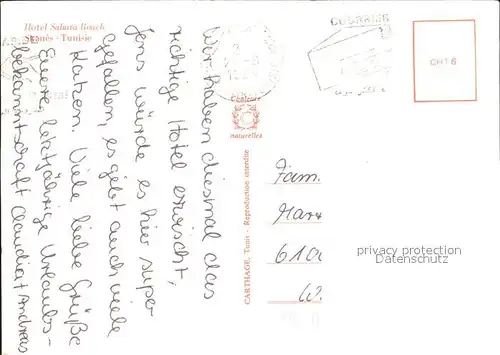 Hotel Sahara Beach
Skanès - Tunisie
Wir haben diesmal das
richtige Hotel erwischt,
Jens würde es hier super
gefallen, es gibt auch viele
Katzen. Viele liebe Grüße
Eure letztjährige Urlaubs-
bekanntschaft Claudia + Andreas
Couleurs
naturelles
CARTHAGE, Tunis - Reproduction interdite
COURRIER
CH16
Fam.
Mar
610
W
privacy protection
Datenschutz